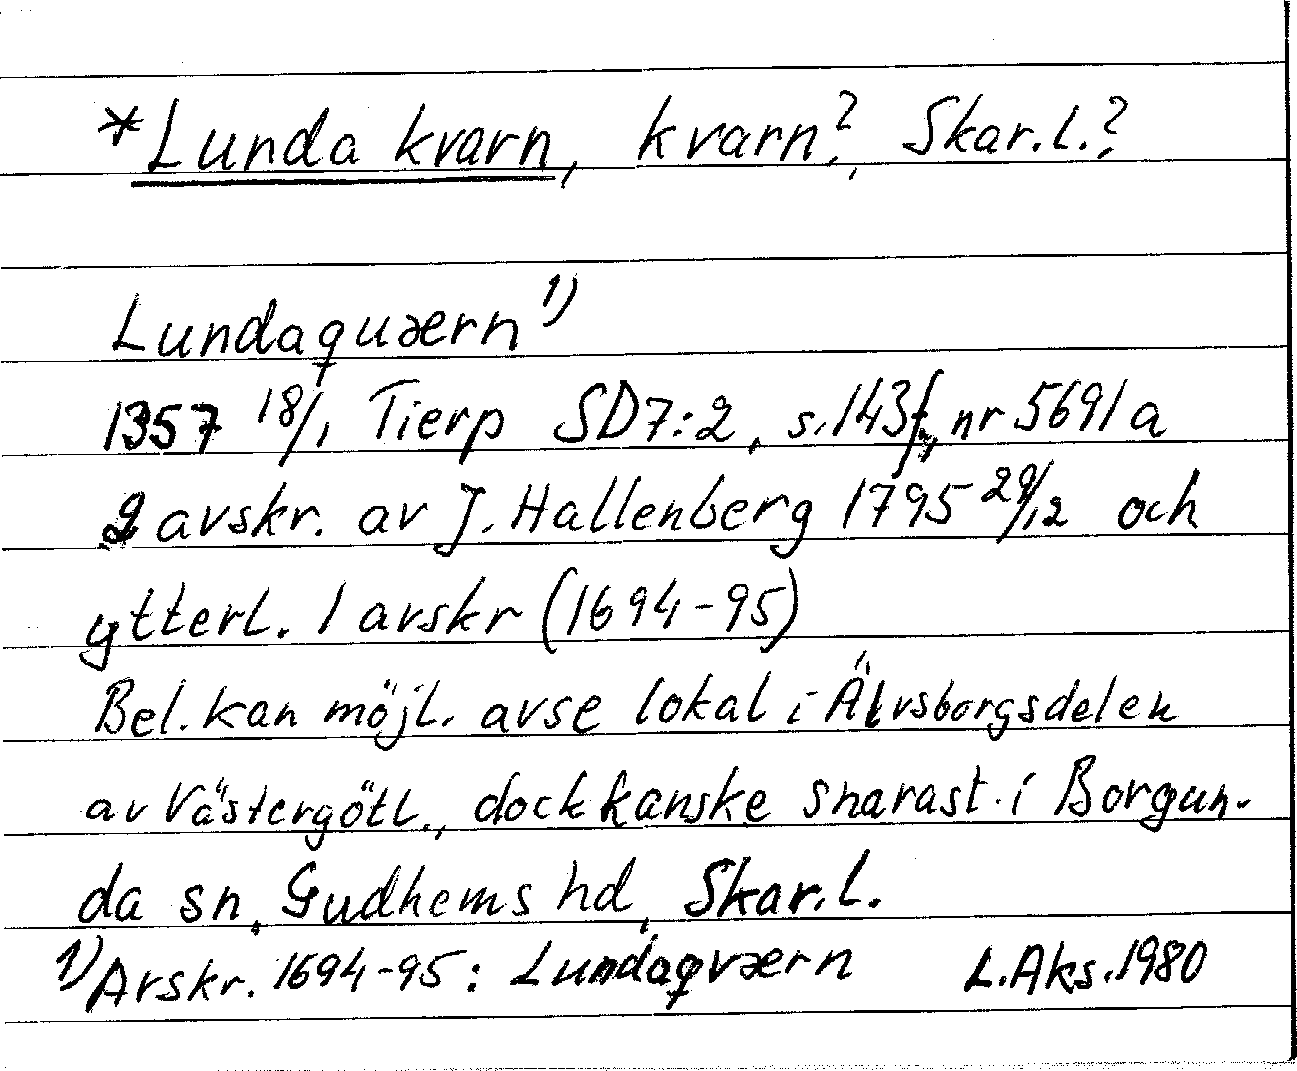 *Lunda kvarn, kvarn?, Skar.l.?
Lundaquærn 1)
1357 18/1 Tierp SD7:2, s.143f, nr 5691 a
2 avskr. av J. Hallenberg 1795 29/12 och
ytterl. 1 avskr (1694-95)
Bel. kan möjl. avse lokal i Älvsborgsdelen
av Västergötl., dock kanske snarast i Borgun-
da sn, Gudhems hd, Skar.l.
1) Avskr. 1694-95: Lundaqværn L.Aks.1980